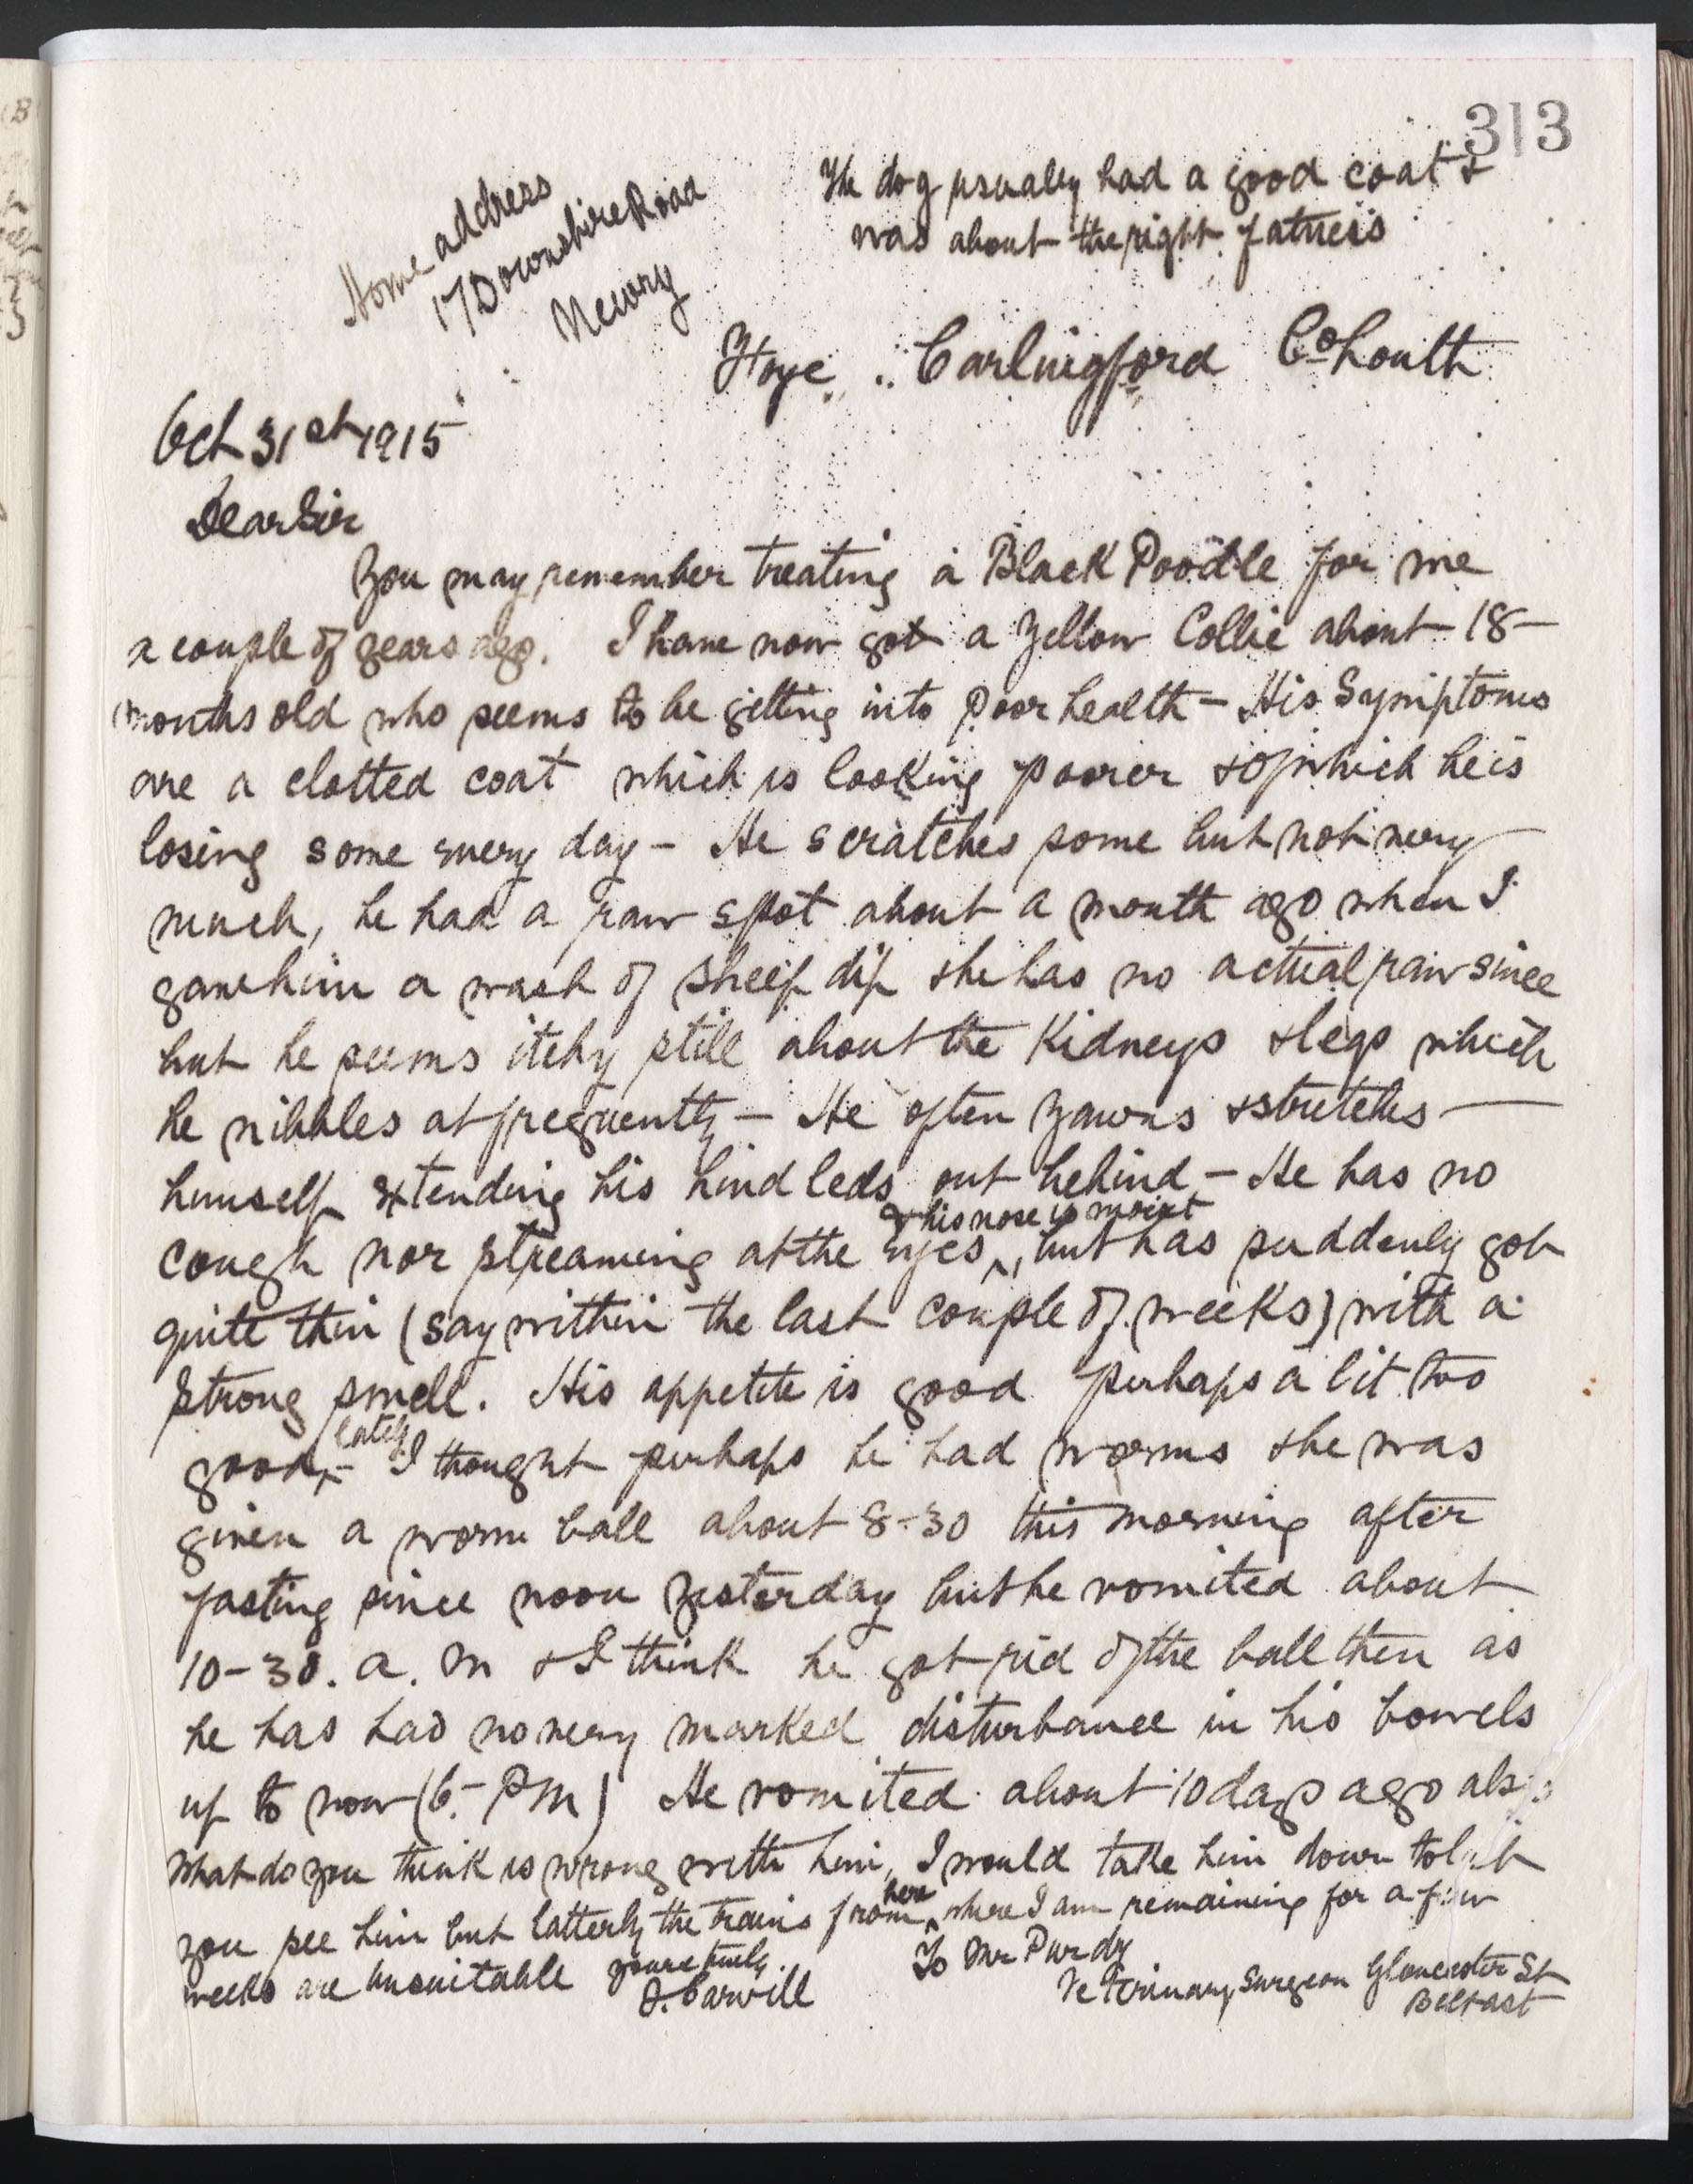 313
The dog usually had a good coat &
was about the right fatness
Home address
17 Downshire Road
Newry
Carlingford Co Louth
Oct 31st 1915
Dear Sir
You may remember treating a Black Poodle for me
a couple of years ago. I have now got a yellow Collie about 18-
months old who seems to be getting into poor health - His Symptoms
are a clotted coat which is looking poorer & of which he is
losing some every day - He scratches some but not very
much, he had a raw spot about a month ago when I
gave him a wash of sheep dip & he has no actual raw since
but he seems itchy still about the Kidneys & legs which
he nibbles at frequently - He often yawns & stretches
himself extending his hind leds out behind - He has no
& his nose is moist
cough nor streaming at the eyes ^, but has suddenly got
quite thin (say within the last couple of weeks) with a
strong smell. His appetite is good perhaps a bit too
lately
good ^ - I thought perhaps he had worms & he was
given a worm ball about 8-30 this morning after
fasting since noon yesterday but he vomited about
10-30. a. m & I think he got rid of the ball then as
he has had no very marked disturbance in his bowels
up to now (6.- PM) He vomited about 10 days ago also
What do you think is wrong with him, I would take him down to let
here
you see him but latterly the trains from ^ where I am remaining for a few
weeks are unsuitable yours truly
J. Carvill
To Mr Purdy
Veterinary Surgeon Gloucester St
Belfast